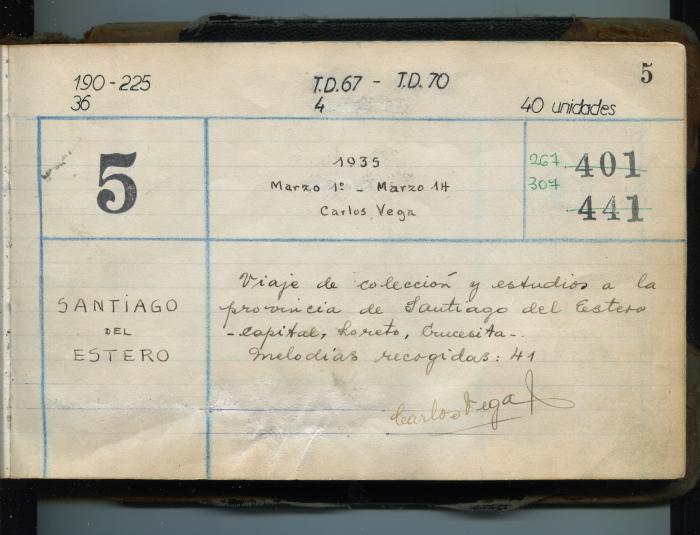 5
190-225
36
T.D.67 - T.D.70
4
40 unidades
5
1935
Marzo 1º - Marzo 14
Carlos Vega
267 401
307 441
SANTIAGO
DEL
ESTERO
Viaje de colección y estudios a la
provincia de Santiago del Estero
- capital, Loreto, Crucesita -.
Melodías recogidas: 41
Carlos Vega